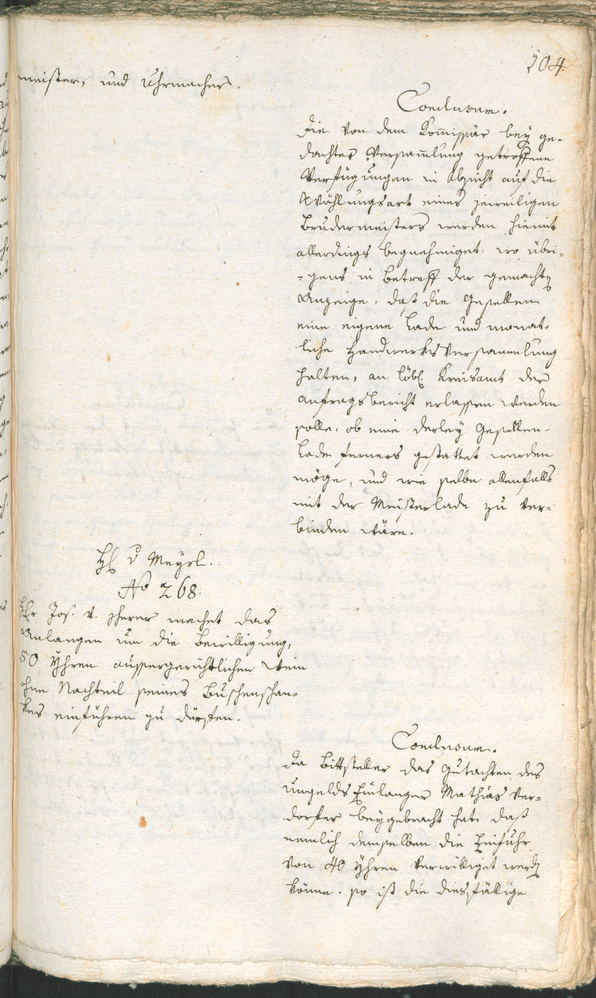 104.
meister, und Uhrmacher.
Conclusum.
Die von dem Kommissär bey ge-
dachter Versammlung getroffene
Verfügungen in Absicht auf die
Wählungsart eines jeweiligen
Brudermeisters werden hiemit
allerdings begnehmiget. wo übri-
-gens in Betreff der gemachten
Anzeige, daß die Gesellen
eine eigene Lade und monat-
liche Handwerksversammlung
halten, an löbl. Kreisamt der
Anfragsbericht erlassen werden
solle, ob eine derley Gesellen-
Lade ferners gestattet werden
möge, und wie selbe allenfalls
mit der Meisterlade zu ver-
binden wäre.
H. v Meyrl.
No 268.
Hr Jos. v. Zherer machet das
Anlangen um die Bewilligung,
50 Yhren aussergerichtlichen Wein
ohne Nachteil seines Buschenschan-
kes einführen zu dürfen.
Conclusum.
Da Bittsteller das Gutachten des
Ungelds Einlanger Mathias Ver-
dorfer beygebracht hat, daß
nemlich demselben die Einfuhr
von 40 Yhren verwilliget werden
könne. so ist die diesfällige